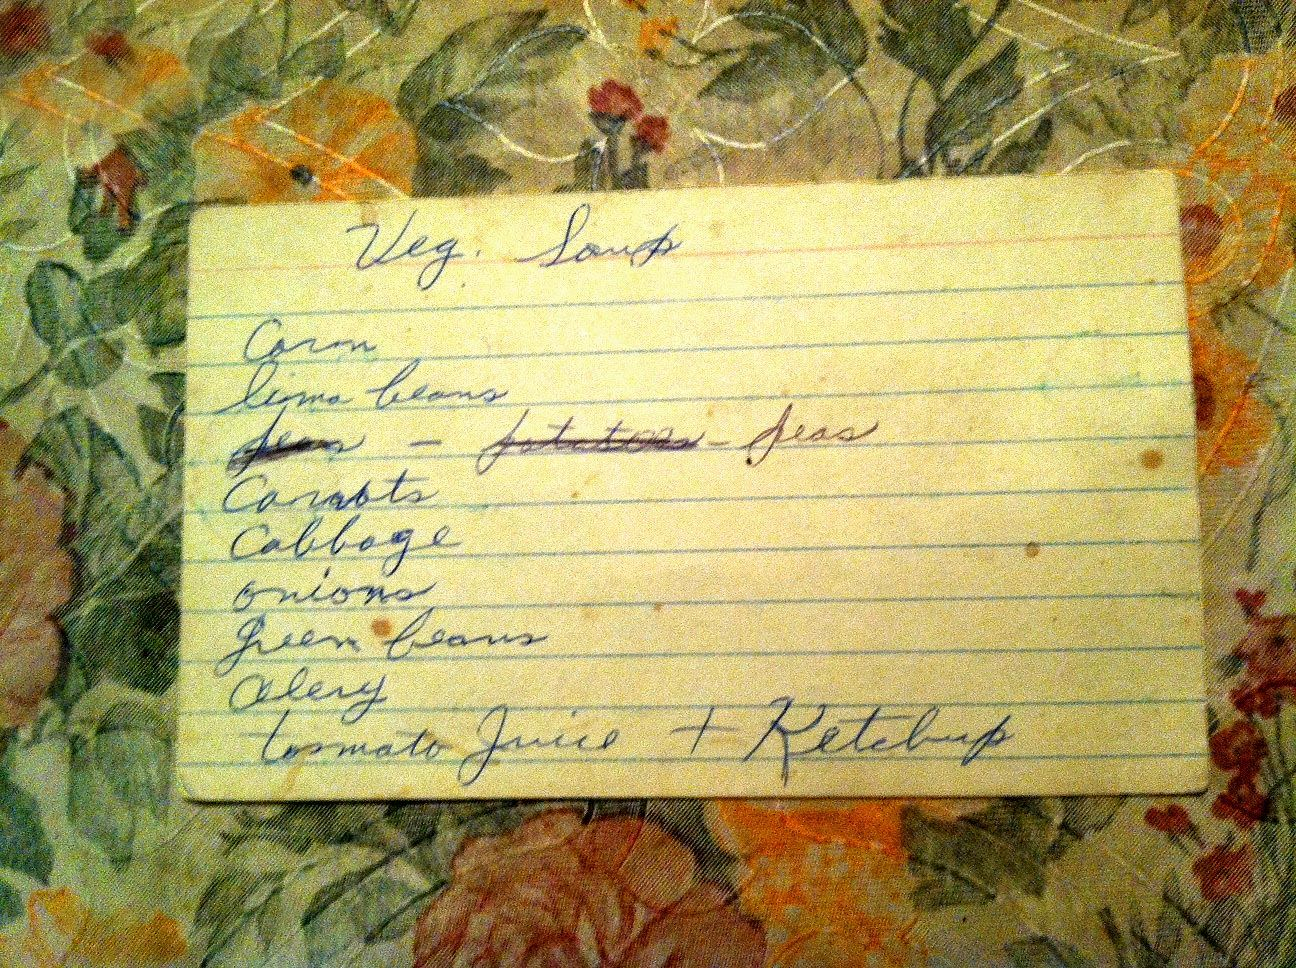 Veg. Soup
Corn
lima beans
peas - potatoes - peas
Carrots
Cabbage
onions
green beans
Celery
tomato Juice + Ketchup